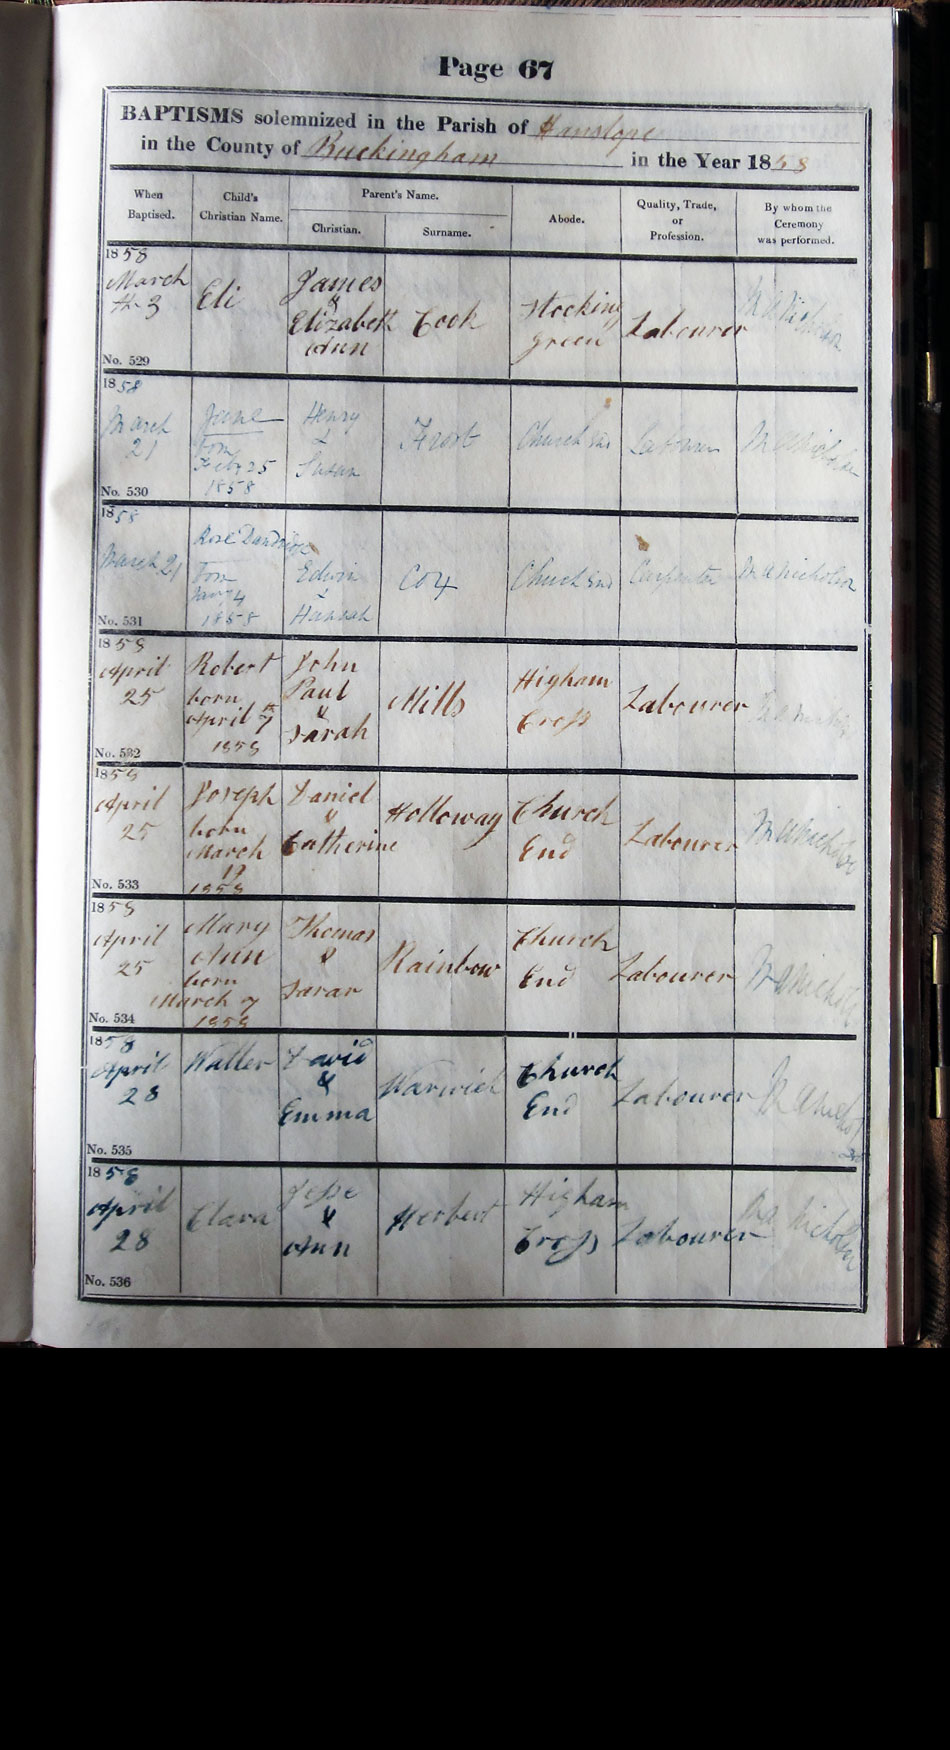 Page 67
BAPTISMS solemnized in the Parish of Hanslope
in the County of Buckingham in the Year 1858
When Baptised.
Child's Christian Name.
Parent's Name.
Christian.
Surname.
Abode.
Quality, Trade, or Profession.
By whom the Ceremony was performed.
1858
March
th 3
No. 529
Eli
James
&
Elizabeth
Ann
Cook
Stocking
green
Labourer
1858
March
21
No. 530
Jane
born
Feby 25
1858
Henry
&
Susan
Frost
Church End
Labourer
M A Nicholson
1858
March 21
No. 531
Rose Dandridge
born
Jany 4
1858
Edwin
&
Hannah
Cox
Church End
Carpenter
M A Nicholson
1858
April
25
No. 532
Robert
born
April 7th
1858
John
Paul
&
Sarah
Mills
Higham
Cross
Labourer
1858
April
25
No. 533
Joseph
born
March
19
1858
Daniel
&
Catherine
Holloway
Church
End
Labourer
M A Nicholson
1858
April
25
No. 534
Mary
Ann
born
March 7
1858
Thomas
&
Sarah
Rainbow
Church
End
Labourer
M A Nicholson
1858
April
28
No. 535
Walter
David
&
Emma
Warwick
Church
End
Labourer
M A Nicholson
1858
April
28
No. 536
Clara
Jesse
&
Ann
Herbert
Higham
Cross
Labourer
M A Nicholson